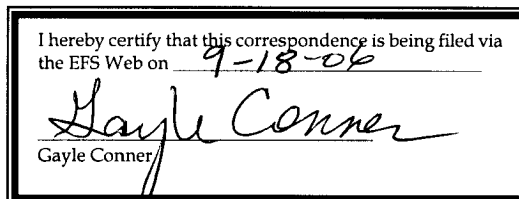 I hereby certify that this correspondence is being filed via
the EFS Web on 9-18-06
Gayle Conner
Gayle Conner